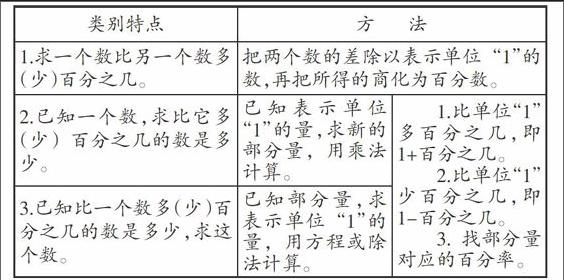 类别特点
方 法
1.求一个数比另一个数多
(少)百分之几。
把两个数的差除以表示单位“1”的
数,再把所得的商化为百分数。
2.已知一个数,求比它多
(少) 百分之几的数是多
少。
已知表示单位
“1”的量,求新的
部分量, 用乘法
计算。
3.已知比一个数多(少)百
分之几的数是多少,求这
个数。
已知部分量,求
表示单位 “1”的
量, 用方程或除
法计算。
1.比单位“1”
多百分之几,即
1+百分之几。
2.比单位“1”
少百分之几,即
1-百分之几。
3. 找部分量
对应的百分率。